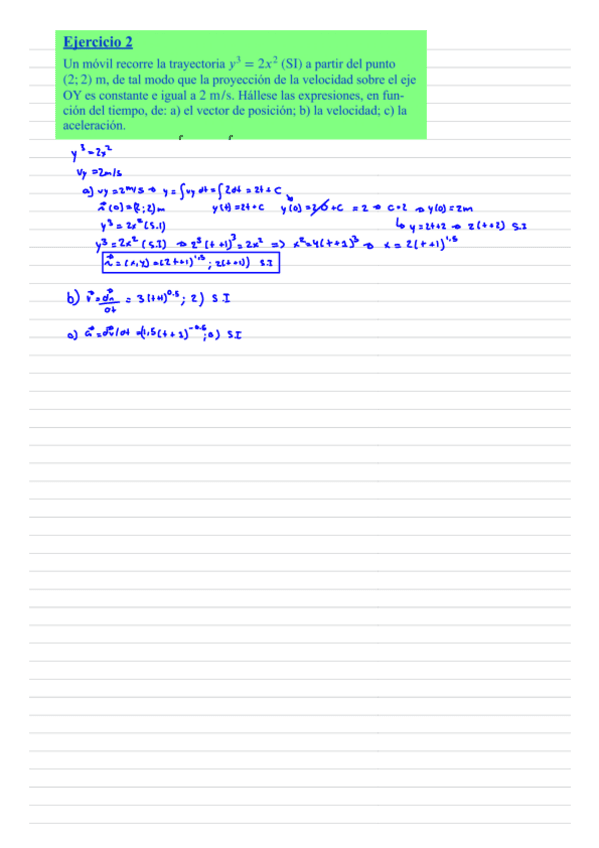 Ejercicio 2
Un móvil recorre la trayectoria y³ = 2x² (SI) a partir del punto
(2; 2) m, de tal modo que la proyección de la velocidad sobre el eje
OY es constante e igual a 2 m/s. Hállese las expresiones, en fun-
ción del tiempo, de: a) el vector de posición; b) la velocidad; c) la
aceleración.
y³=2x²
vy=2m/s
a) vy=2m/s → y=∫vy dt=∫2dt=2t+C
r⃗(0)=(2;2)m y(t)=2t+C y(0)=2·0+C =2 → C=2 → y(0)=2m
y³=2x²(S.I) ↳ y=2t+2 → 2(t+2) S.I
y³=2x²(S.I) → 2³(t+1)³=2x² => x²=4(t+1)³ → x=2(t+1)^1,5
r⃗=(x,y)=(2t+1)^1,5; 2(t+1)) S.I
b) v⃗=dr⃗/dt = 3(t+1)^0.5; 2) S.I
a⃗=dv⃗/dt=(1,5(t+1)^-0.5;0) S.I